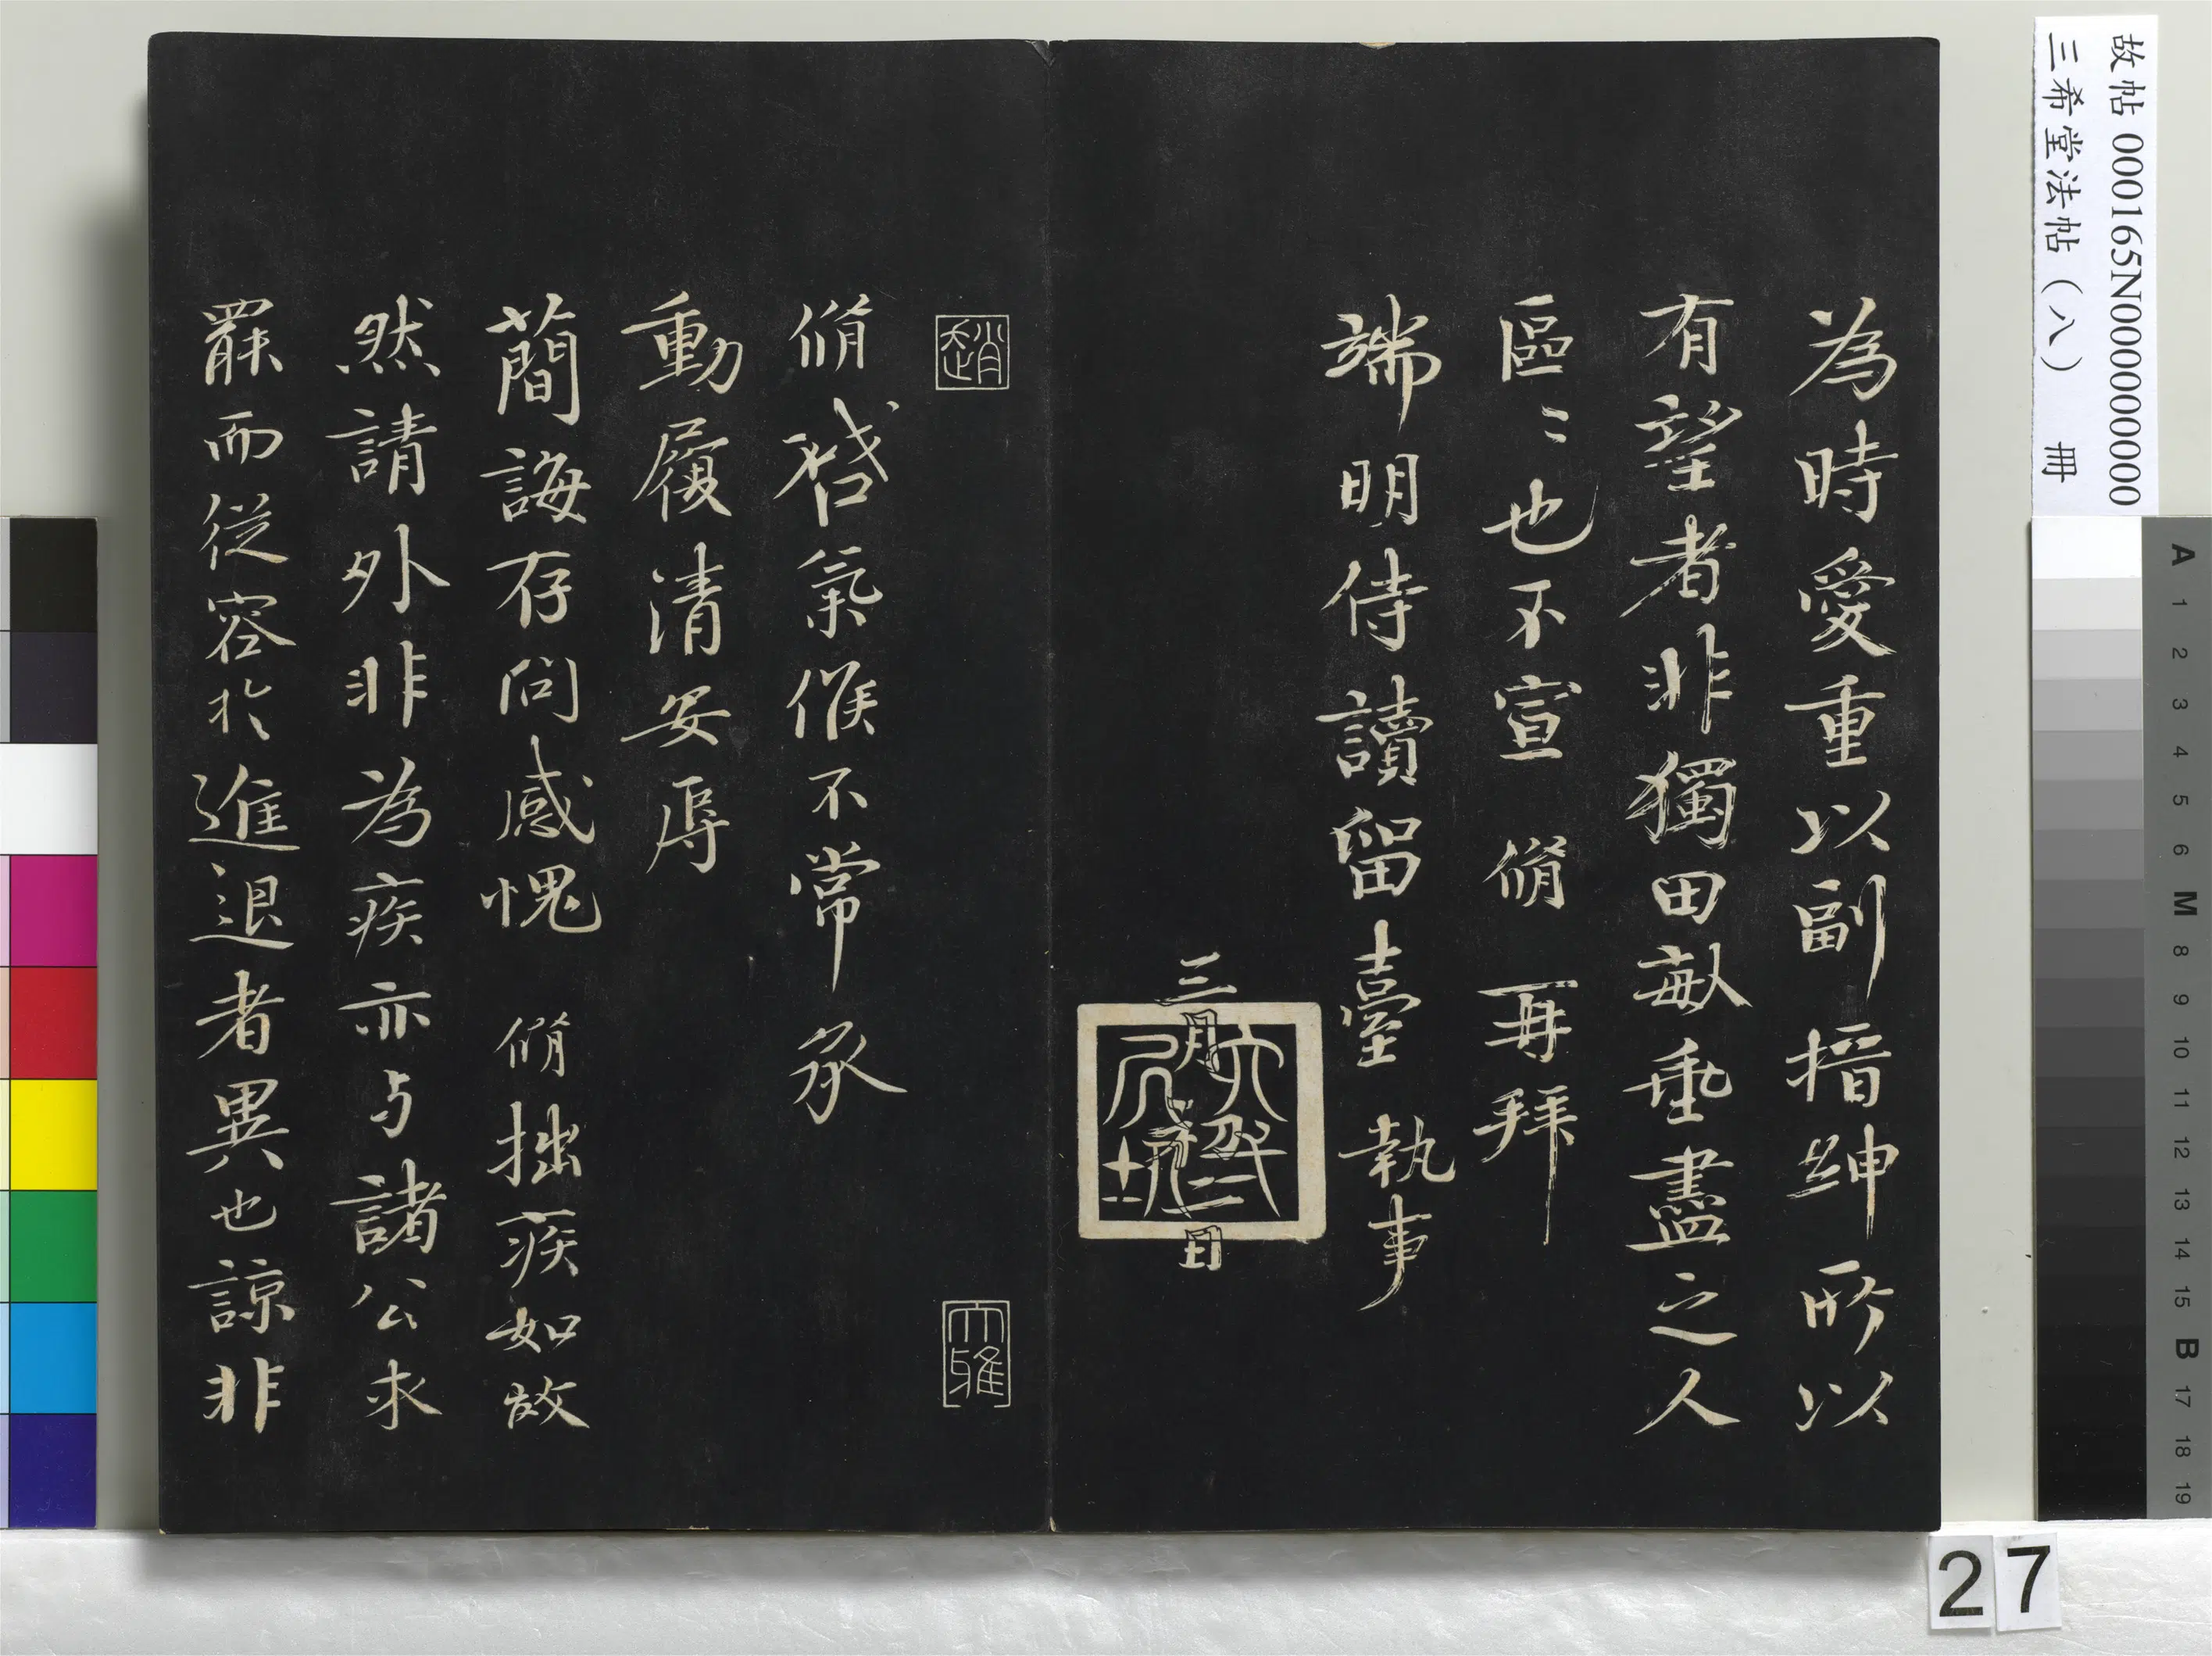 故帖 000165N000000000
三希堂法帖（八） 冊
為時愛重以副搢紳所以
有望者非獨田畝垂盡之人
區〻也不宣 脩 再拜
端明侍讀留臺 執事
三月初二日
趙
大雅
脩啓氣候不常 承
動履清安辱
簡誨存問感愧 脩拙疾如故
然請外非為疾亦与諸公求
罷而從容於進退者異也諒非
A 1 2 3 4 5 6 M 8 9 10 11 12 13 14 15 B 17 18 19
27